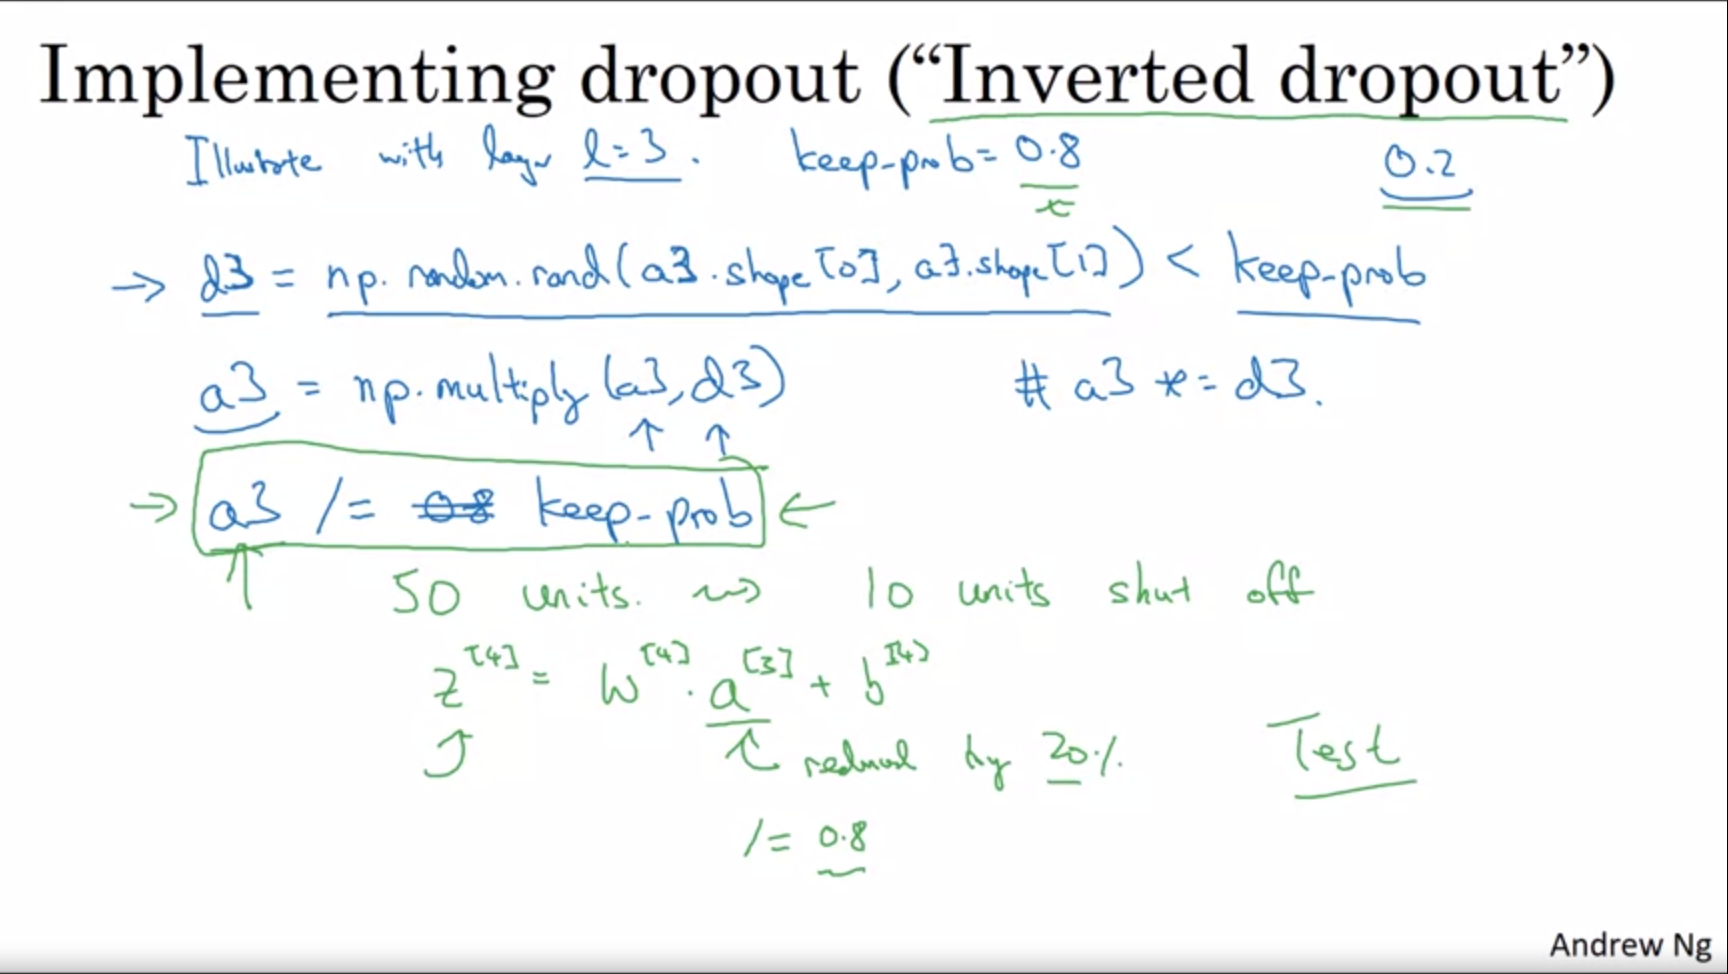 Implementing dropout (“Inverted dropout”)
Illustrate with layer l=3. keep-prob= 0.8 0.2
x
→ d3 = np.random.rand(a3.shape[0], a3.shape[1]) < keep-prob
a3 = np.multiply(a3, d3) # a3 *= d3.
↑ ↑
→ a3 /= 0.8 keep-prob ←
50 units. ⇝ 10 units shut off
z[4] = W[4] · a[3] + b[4]
reduced by 20% Test
/= 0.8
Andrew Ng